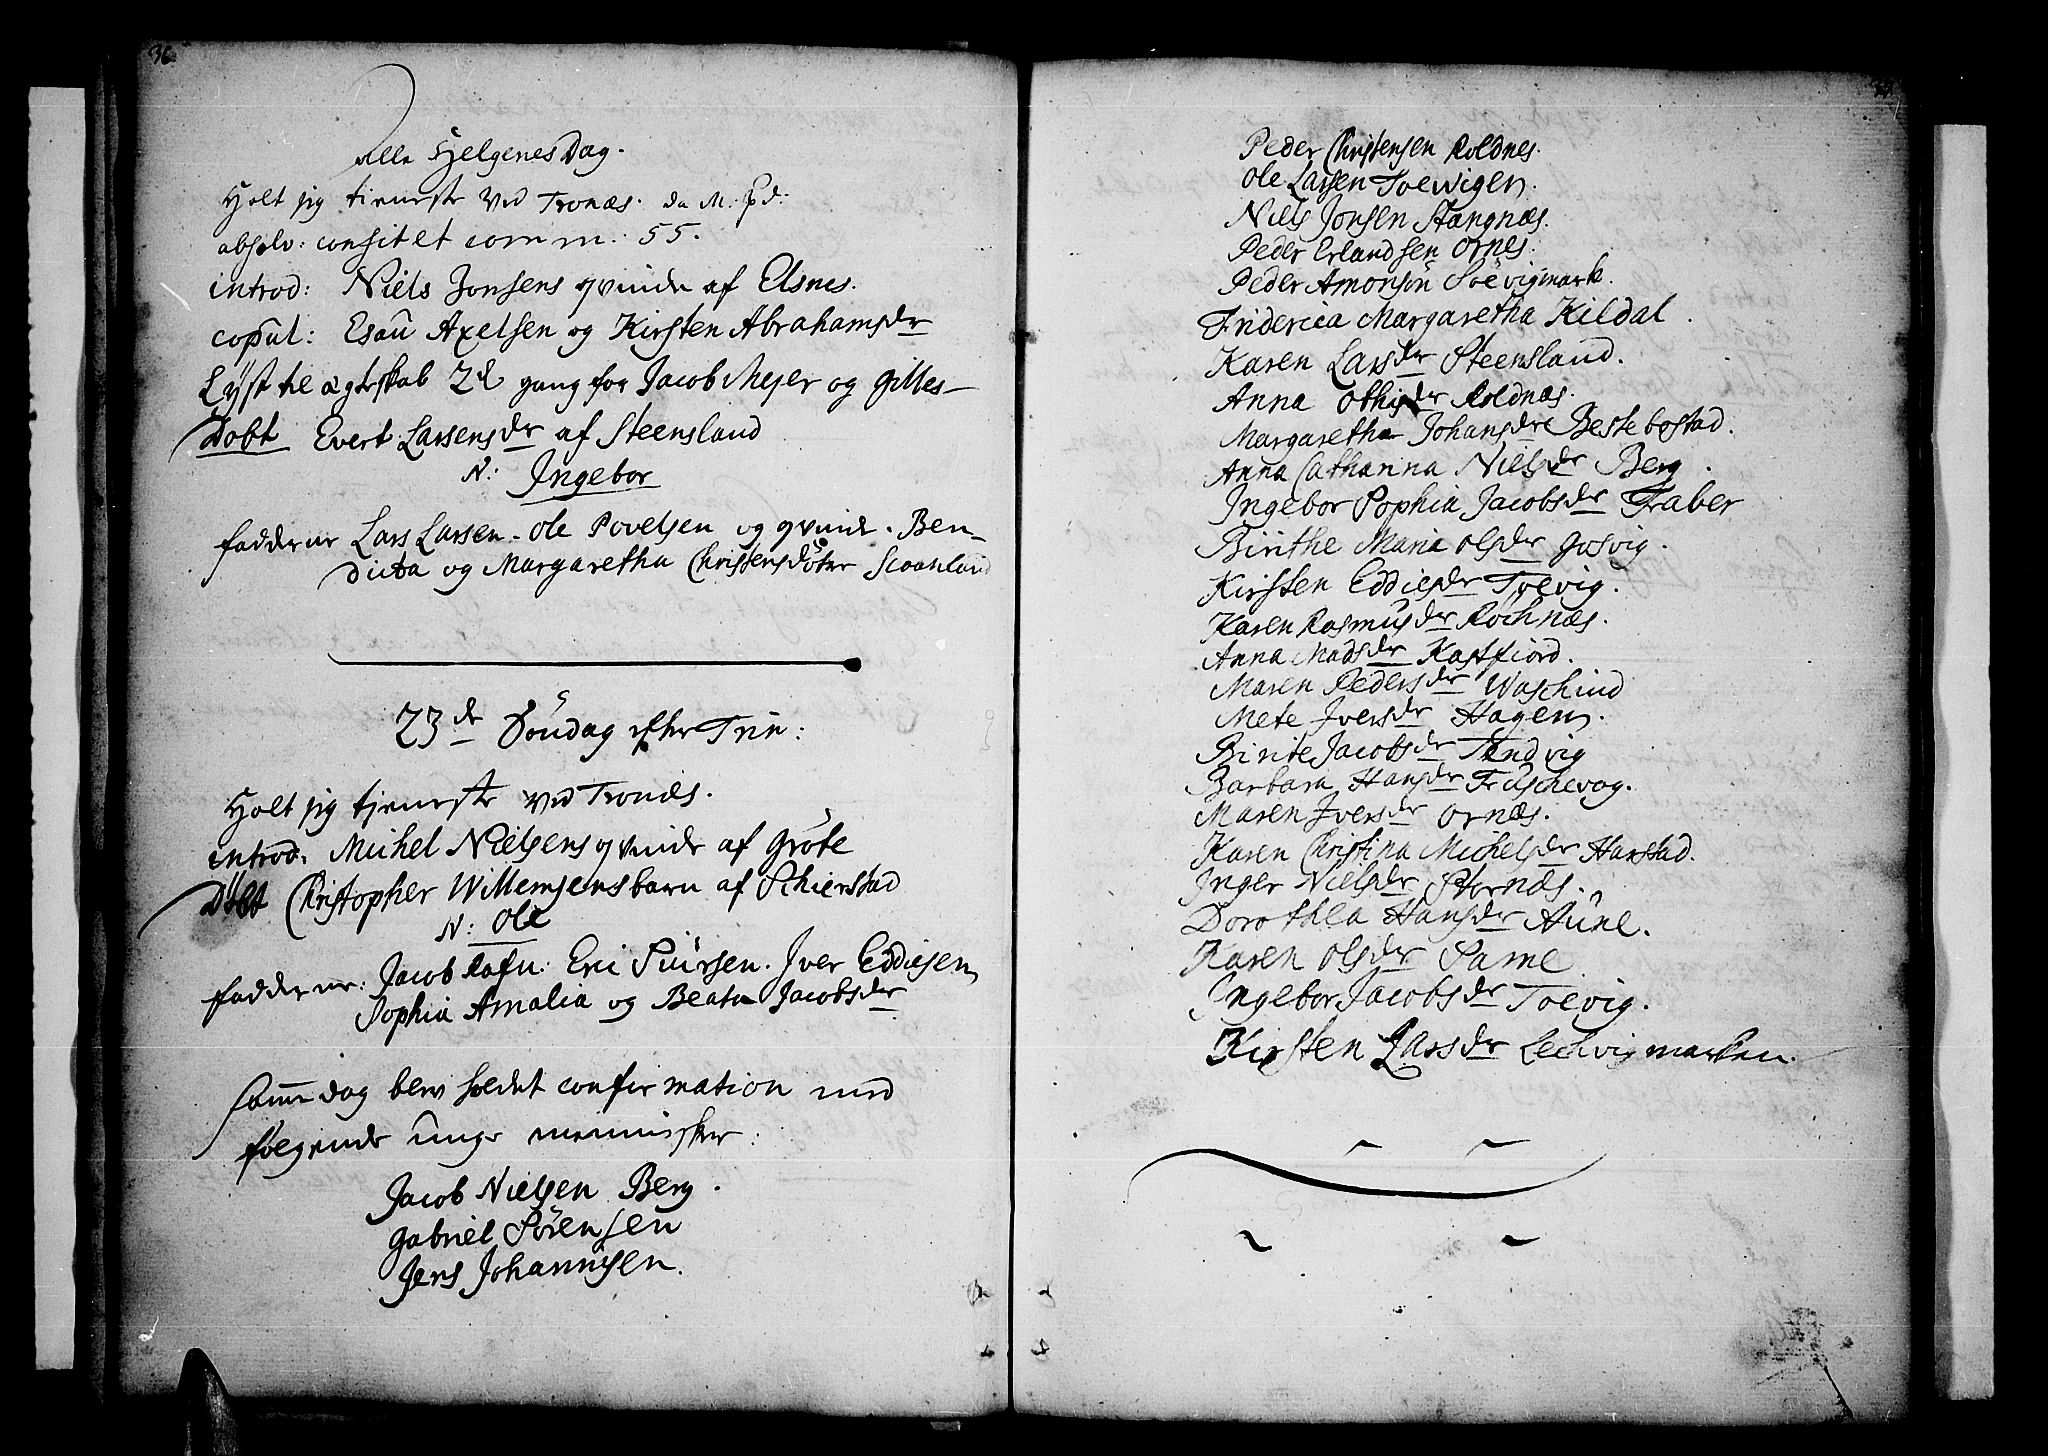 36
Alle Helgenes Dag.
Holt jeg tieneste ved Tronæs. da M. Hd:
absolv: confitet comm: 55.
introd: Niels Jonsens qvinde af Elsnes.
copul: Esau Axelsen og Kirsten Abrahamsdr
Lyst til ægteskab 2d gang for Jacob Mejer og gilles-
Döbt Evert Larsens dr af Steensland
N: Ingebor
fadderne Lars Larsen. Ole Povelsen og qvinde. Ben-
dicta og Margaretha Christensdøter Scaanland
23de Söndag efter Trin:
Holt jeg tjeneste ved Tronæs.
introd. Michel Nielsens qvinde af Gröte
Döbt Christopher Willemsens barn af Schierstad
N: Ole
fadderne: Jacob Rafn: Eric Siursen. Iver Eddiesen
Sophia Amalia og Beata Jacobsdr
samme dag blev holdet confirmation med
følgende unge mennisker:
Jacob Nielsen Berg.
Gabriel Sörensen
Jens Johannisen.
Peder Christensen Roldnes.
Ole Larsen Toewigen.
Niels Jonsen Stangnæs.
Peder Erlandsen Ornes.
Peder Amonsön Soevigmark.
Friderica Margaretha Kildal.
Karen Larsdr Steensland.
Anna Othisdr Roldnæs.
Margaretha Johansdr Bestebostad.
Anna Catharina Nielsdr Berg.
Ingebor Sophia Jacobsdr Traber
Birithe Maria Olsdr Gosvig.
Kirsten Eddiesdr Toevig.
Karen Rasmusdr Rochnæs.
Anna Madsdr Kastfiord.
Maren Pedersdr Waschind
Mete Iversdr Hagen.
Birite Jacobsdr Tendvig
Barbara Hansdr Frischevog.
Maren Iversdr Ornæs.
Karen Christina Michelsdr Harstad.
Inger Nielsdr Stornæs.
Dorothea Hansdr Aune.
Karen Olsdr Same
Ingebor Jacobsdr Toevig.
Kirsten Larsdr Lechvigmarken.